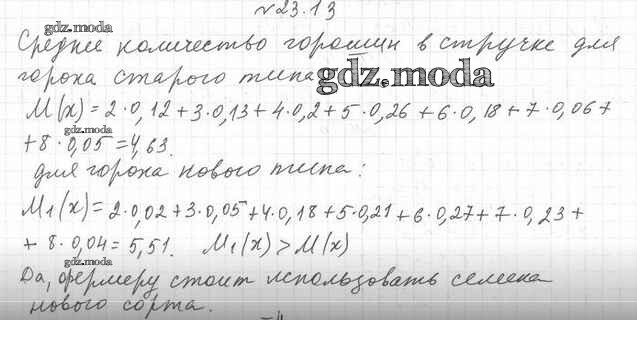 №23.13
gdz.moda
Среднее количество горошин в стручке для
гороха старого типа gdz.moda
M(x) = 2·0,12+3·0,13+4·0,2+5·0,26+6·0,18+7·0,06+
gdz.moda
+8·0,05=4,63.
для гороха нового типа:
M₁(x)=2·0,02+3·0,05+4·0,18+5·0,21+6·0,27+7·0,23+
+8·0,04=5,51. M₁(x)>M(x)
gdz.moda
Да, фермеру стоит использовать семена
нового сорта.